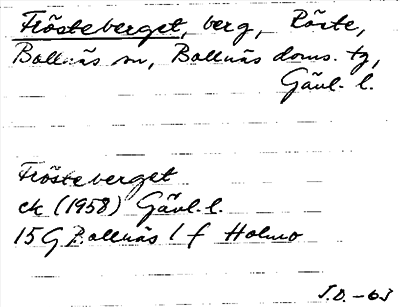 Flösteberget, berg, Röste,
Bollnäs sn, Bollnäs doms. tg,
Gävl. l.
Flösteberget
ek (1958) Gävl. l.
15G Bollnäs 1 f Holmo
J.O. - 63